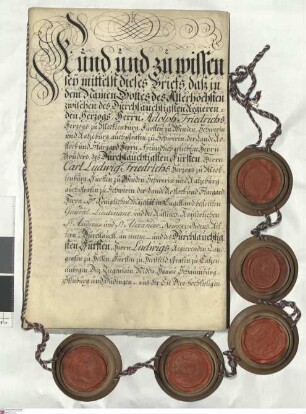 Kund und zu wissen
sey mittelst dieses Briefs, daß in
dem Namen Gottes des Allerhöchsten
zwischen des Durchlauchtigsten Regieren-
den Herzogs Herrn Adolph Friedrichs
Herzogs zu Mecklenburg, Fürsten zu Wenden, Schwerin
und Ratzeburg, auch Grafen zu Schwerin, der Lande Ro-
stock und Stargard Herrn, freundlich geliebten Herrn
Bruders, des Durchlauchtigsten Fürsten, Herrn
Carl Ludwig Friedrichs, Herzogs zu Meck-
lenburg, Fürsten zu Wenden, Schwerin und Ratzeburg,
auch Grafen zu Schwerin, der Lande Rostock und Stargard
Herrn,
General Lieutenant, und der
St. Andreas und St. Alexander Newsky Ordens Rit-
tern, Durchlaucht, an einem, und des Durchlauchtig-
sten Fürsten, Herrn Ludwigs, Regierenden Land-
grafen zu Hessen, Fürsten zu Hersfeld, Grafen zu Catzen-
elnbogen, Dietz, Ziegenhain, Nidda, Hanau, Schaumburg,
Isenburg und Büdingen,